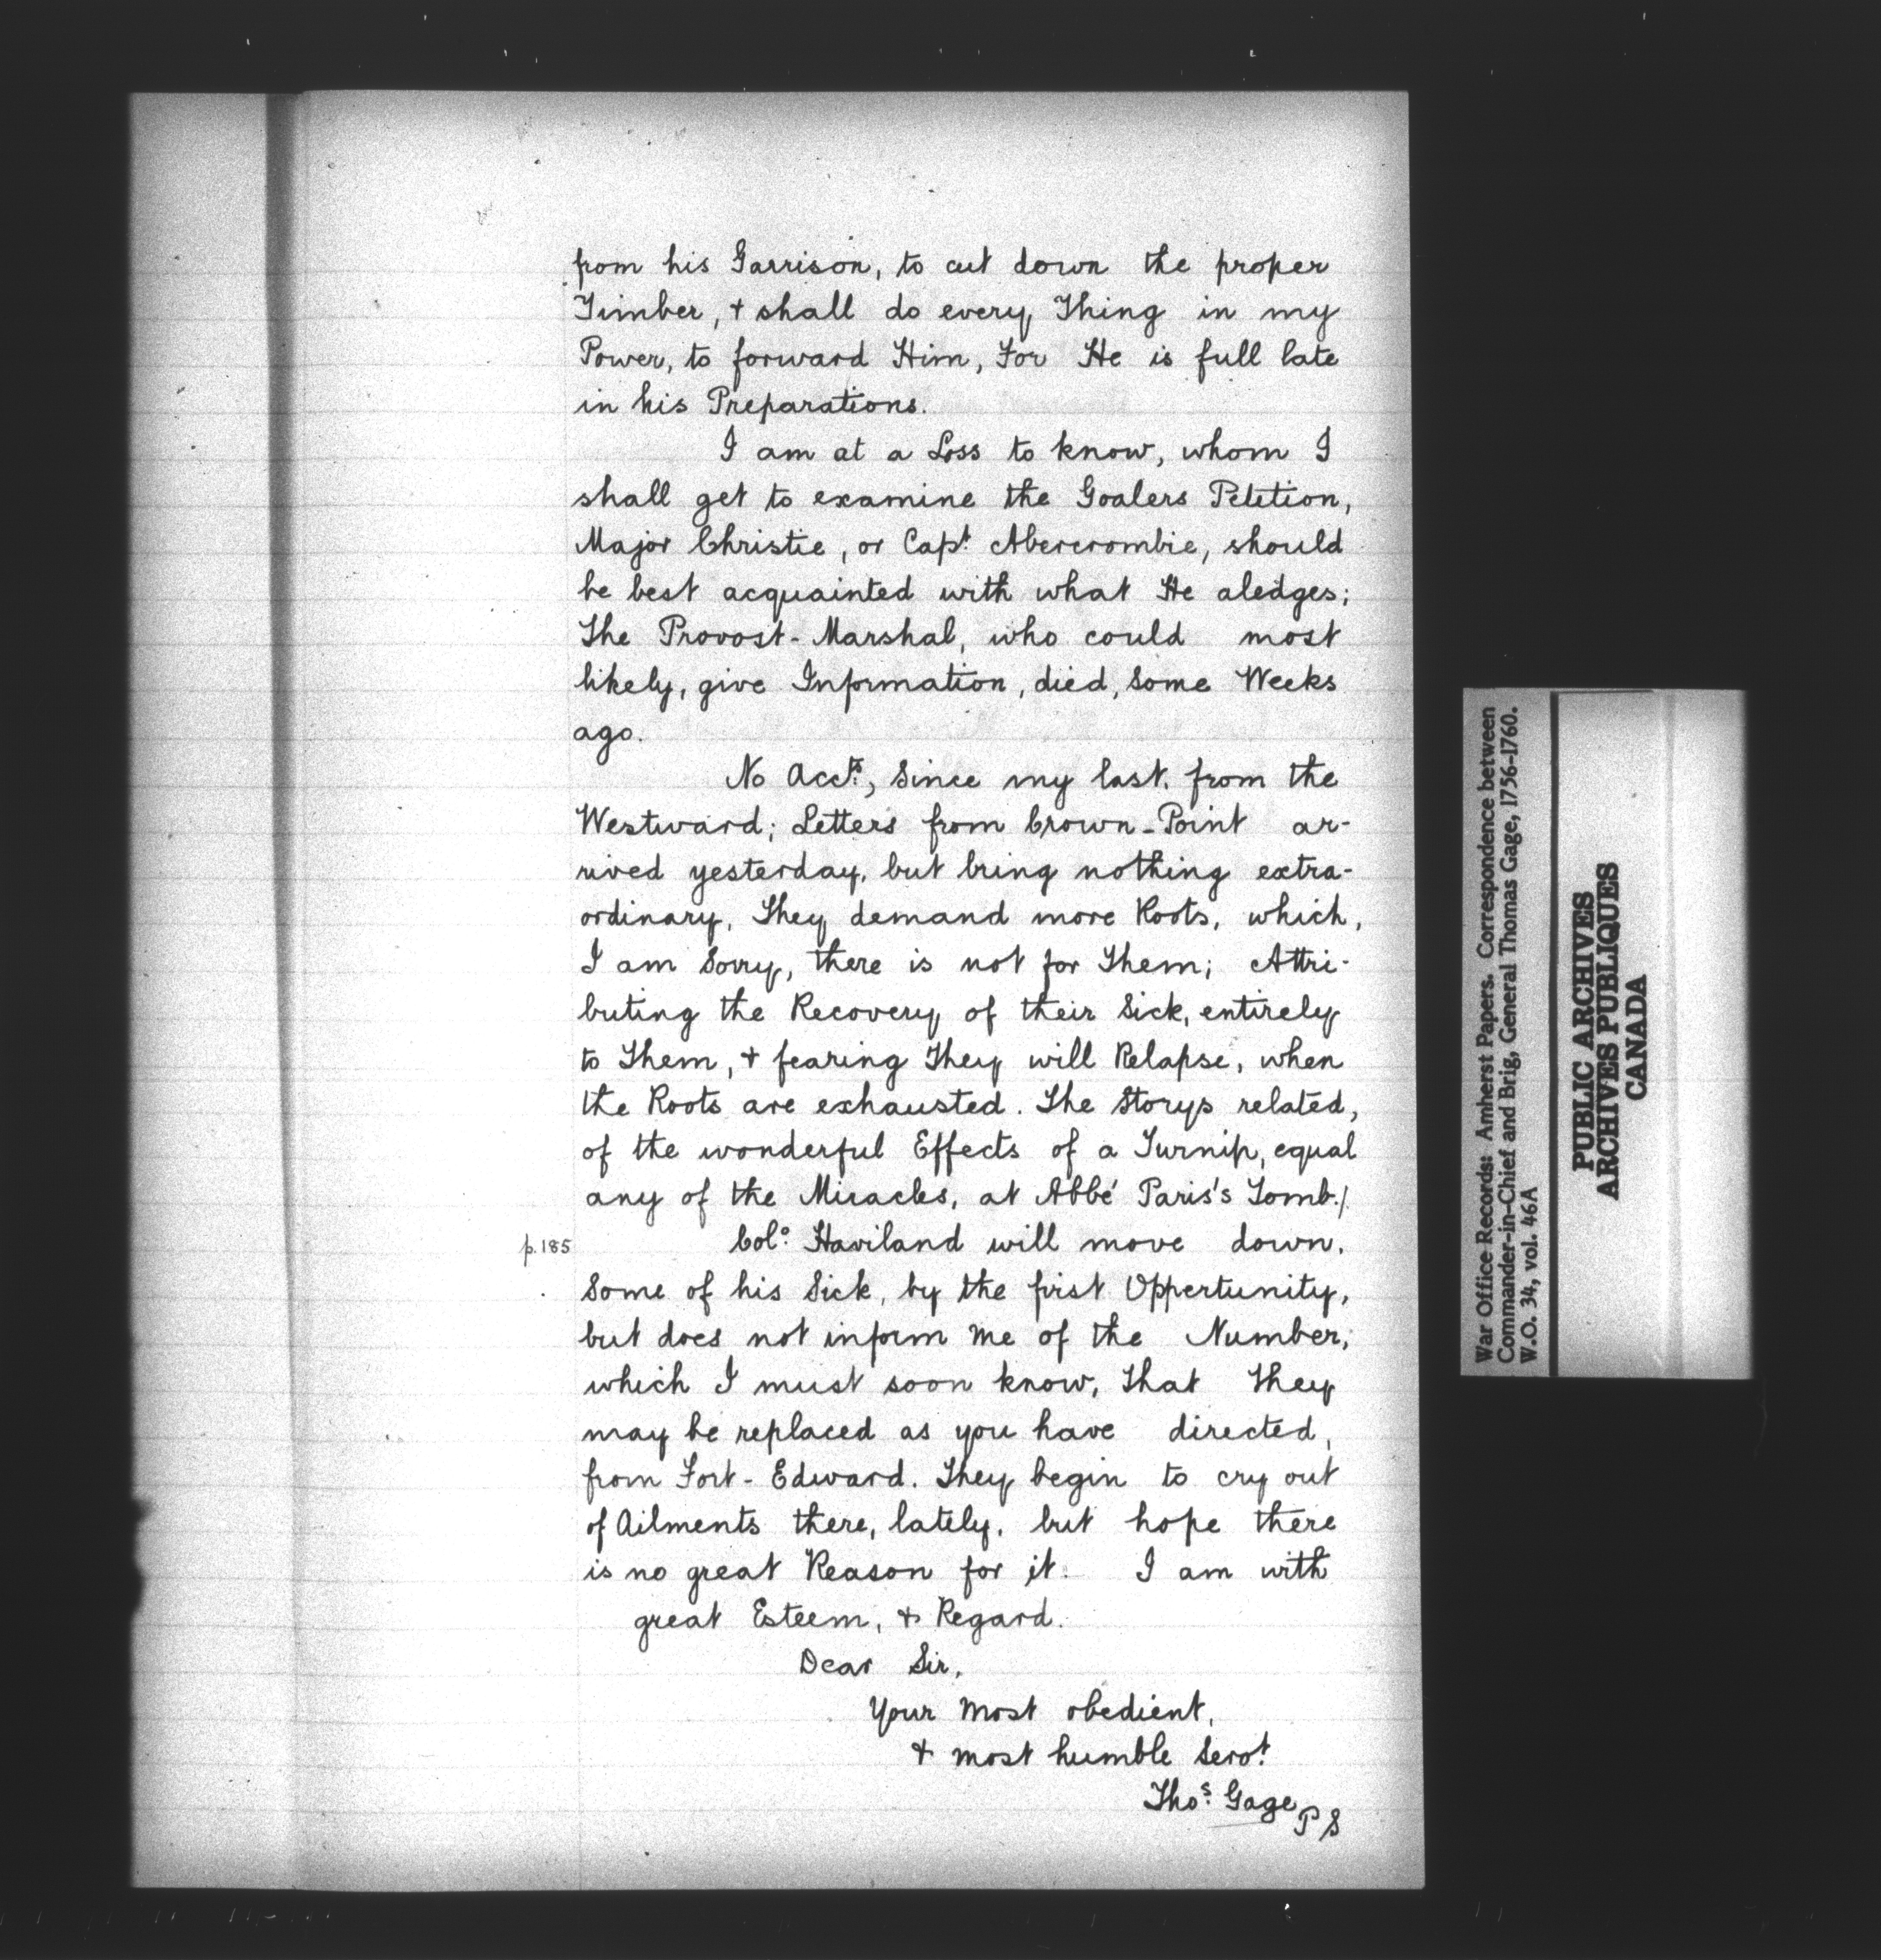 from his Garrison, to cut down the proper
Timber, + shall do every Thing in my
Power, to forward Him, For He is full late
in his Preparations.
I am at a Loss to know, whom I
shall get to examine the Goalers Petition,
Major Christie, or Capt. Abercrombie, should
be best acquainted with what He aledges;
The Provost-Marshal, who could most
likely, give Information, died, Some Weeks
ago.
No Accts., Since my last, from the
Westward; Letters from Crown-Point ar-
rived yesterday, but bring nothing extra-
ordinary, They demand more Roots, which,
I am Sorry, there is not for Them; Attri-
buting the Recovery of their Sick, entirely
to Them, + fearing They will Relapse, when
the Roots are exhausted. The Storys related,
of the wonderful Effects of a Turnip, equal
any of the Miracles, at Abbé Paris's Tomb./
p.185 Colo. Haviland will move down,
Some of his Sick, by the first Oppertunity,
but does not inform me of the Number,
which I must soon know, That They
may be replaced as you have directed,
from Fort-Edward. They begin to cry out
of Ailments there, lately, but hope there
is no great Reason for it. I am with
great Esteem, + Regard.
Dear Sir,
Your Most obedient,
+ most humble Servt.
Thos. Gage
P S
War Office Records: Amherst Papers. Correspondence between
Commander-in-Chief and Brig, General Thomas Gage, 1756-1760.
W.O. 34, vol. 46A
PUBLIC ARCHIVES
ARCHIVES PUBLIQUES
CANADA